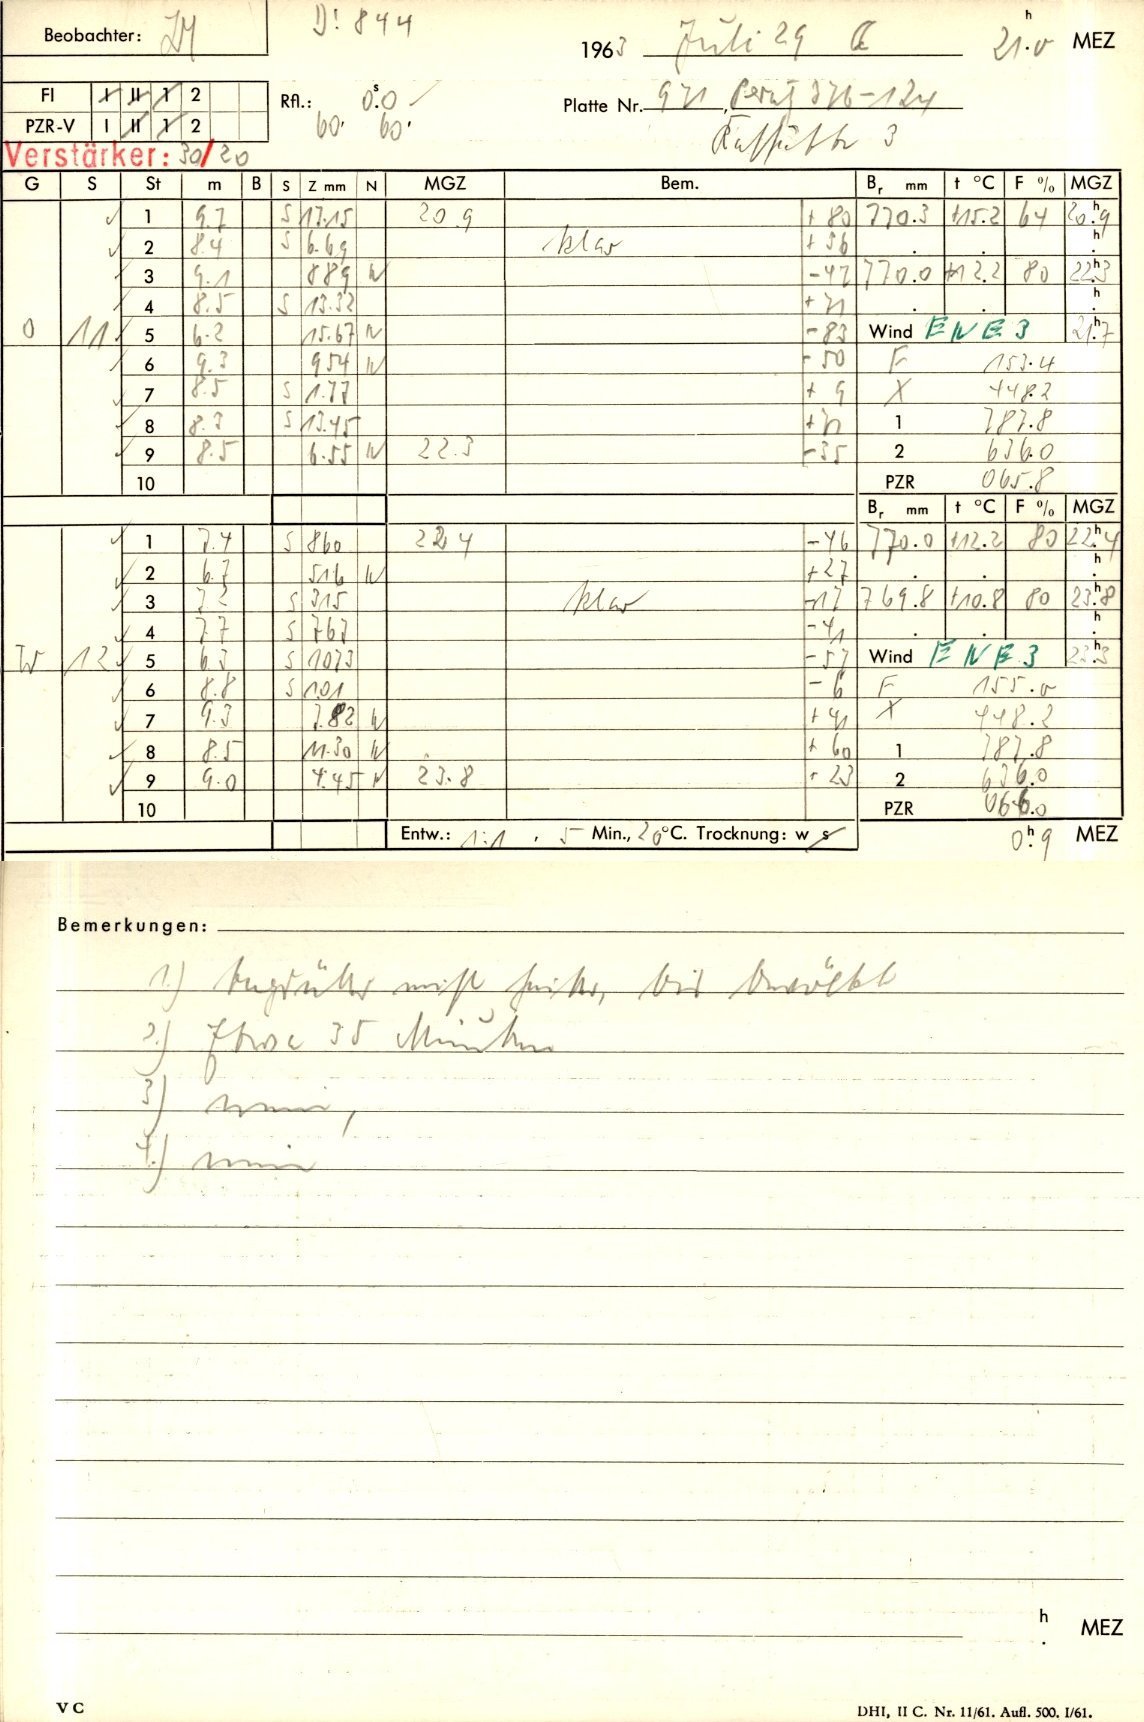 Beobachter:
D! 844
1963 Juli 29
21.0 h MEZ
FI I II 1 2
PZR-V I II 1 2
Rfl.: 0.0 s
60. 60.
Platte Nr. 971, Perutz 376-124
Kassette 3
Verstärker: 30/20
G S St m B S Z mm N MGZ Bem. Br mm t °C F % MGZ
1 9.7 S 17.15 20.9 +80 770.3 +15.2 64 20.9 h
2 8.4 S 6.69 klar +36 . . h .
3 9.1 889 N -47 770.0 +12.2 80 22.3 h
4 8.5 S 13.32 +71 . . h .
O 11 5 6.2 15.67 N -83 Wind ENE 3 21.7 h
6 9.3 954 N -50 F 153.4
7 8.5 S 1.77 +9 X 448.2
8 8.3 S 13.45 +71 1 787.8
9 8.5 6.55 N 22.3 -35 2 636.0
10 PZR 065.8
Br mm t °C F % MGZ
1 7.4 S 860 22.4 -46 770.0 +12.2 80 22.4 h
2 6.7 516 N +27 . . h .
3 7.2 S 315 klar -17 769.8 +10.8 80 23.8 h
4 7.7 S 767 -41 . . h .
W 12 5 6.3 S 1073 -57 Wind ENE 3 23.3 h
6 8.8 S 101 -6 F 155.0
7 9.3 7.82 N +41 X 448.2
8 8.5 11.30 N +60 1 787.8
9 9.0 4.45 N 23.8 +23 2 636.0
10 PZR 066.0
Entw.: 1:1, 5 Min., 20°C. Trocknung: w s
0.9 h MEZ
Bemerkungen:
1.) tagsüber meist heiter, bis bewölkt
2.) Etwa 35 Minuten
3) nein,
4.) nein
h
. MEZ
V C
DHI, II C. Nr. 11/61. Aufl. 500. I/61.